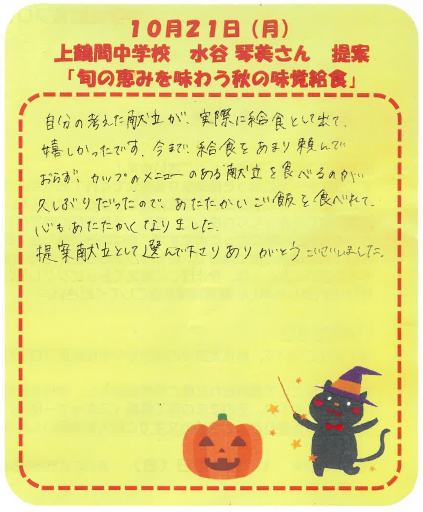 10月21日（月）
上鶴間中学校　水谷 琴美さん　提案
「旬の恵みを味わう秋の味覚給食」
自分の考えた献立が、実際に給食として出て、
嬉しかったです。今まで、給食をあまり頼んで
おらず、カップのメニューのある献立を食べるのが
久しぶりだったので、あたたかいご飯を食べれて、
心もあたたかくなりました。
提案献立として選んで下さりありがとうございました。